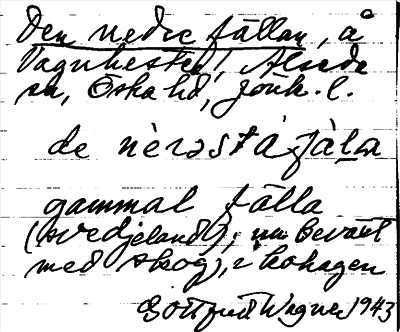 Den nedre fällan, å
Vagnhester, Alseda
sn, Östra hd, Jönk. l.
de nèrəstá fälan
gammal fälla
(svedjeland), nu beväxt
med skog, i kohagen
Gottfrid Wagner 1943